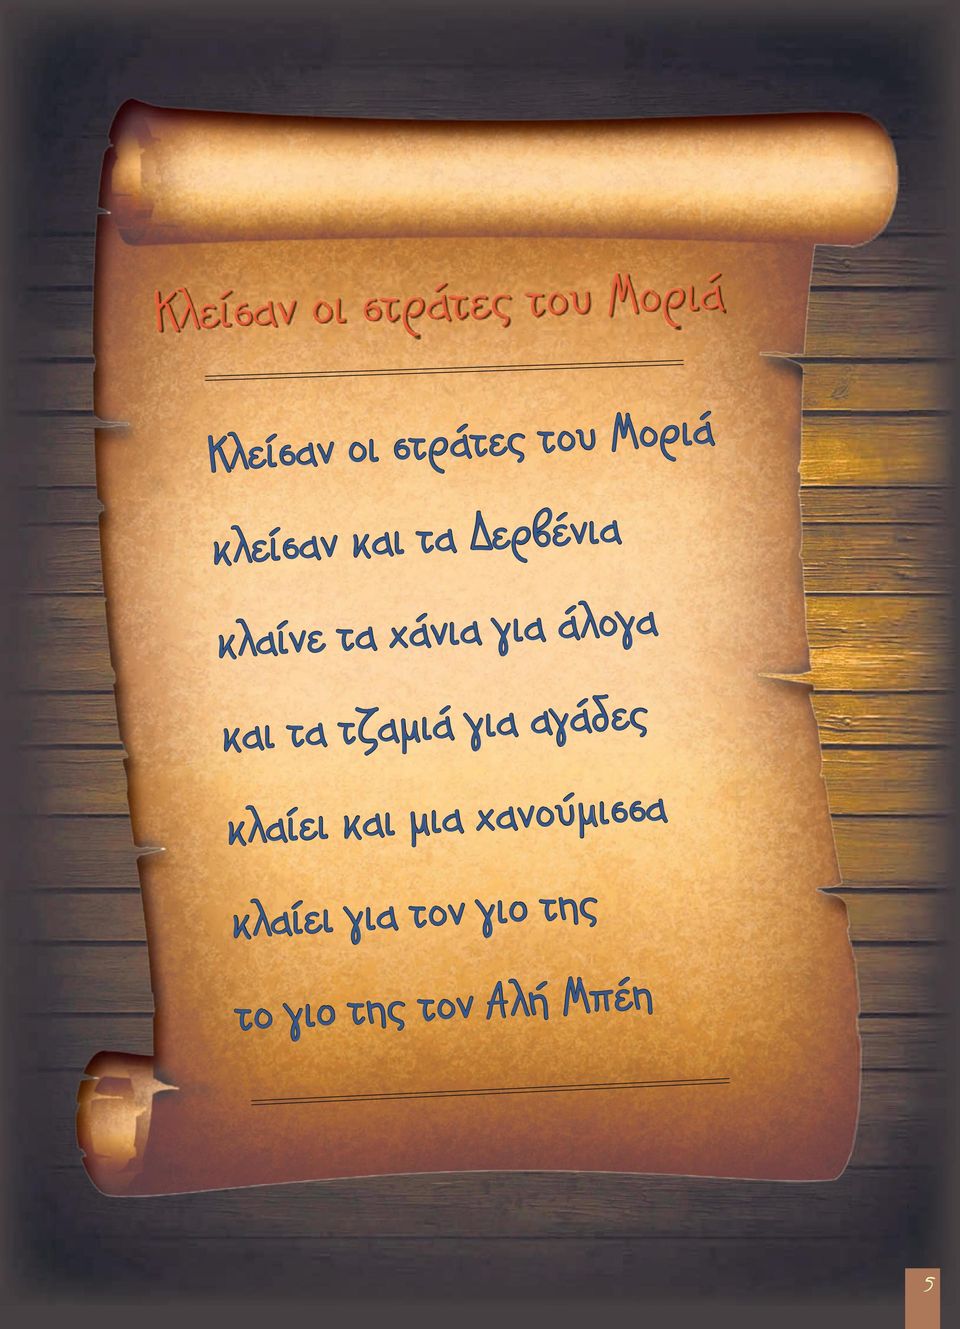 Κλείσαν οι στράτες του Μοριά
Κλείσαν οι στράτες του Μοριά
κλείσαν και τα Δερβένια
κλαίνε τα χάνια για άλογα
και τα τζαμιά για αγάδες
κλαίει και μια χανούμισσα
κλαίει για τον γιο της
το γιο της τον Αλή Μπέη
5